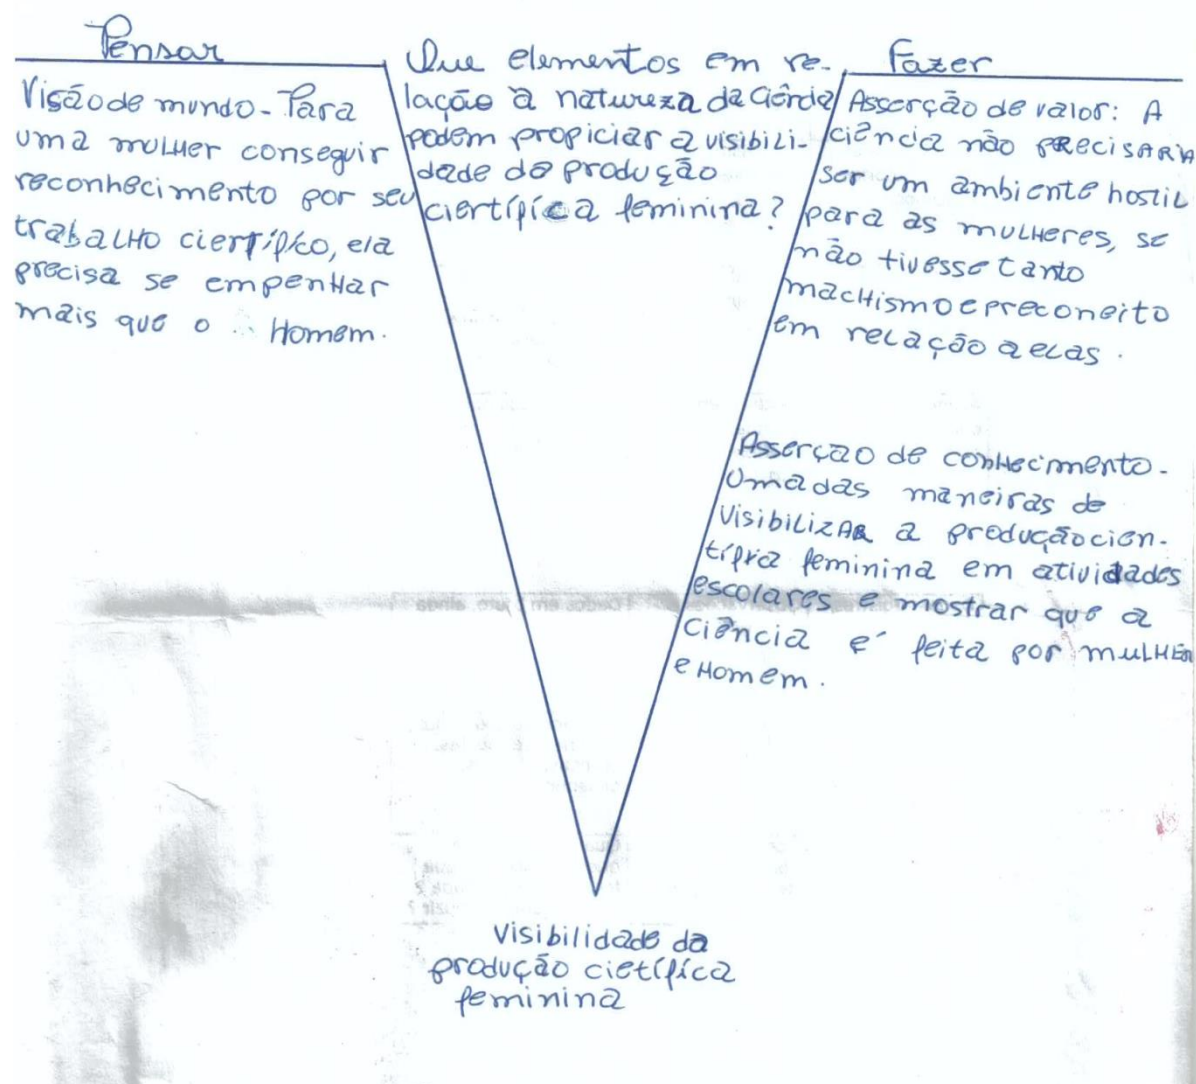 Pensar
Visão de mundo - Para
uma mulher conseguir
reconhecimento por seu
trabalho científico, ela
precisa se empenhar
mais que o Homem.
Que elementos em re-
lação à natureza da Ciência
podem propiciar a visibili-
dade da produção
científica feminina?
Fazer
Asserção de valor: A
ciência não PRECISARIA
ser um ambiente hostil
para as mulheres, se
não tivesse tanto
machismo e preconeito
em relação a elas.
Asserção de conhecimento -
Uma das maneiras de
visibilizAR a produção cien-
tífica feminina em atividades
escolares e mostrar que a
ciência é feita por mulhER
e Homem.
visibilidade da
produção cietífica
feminina